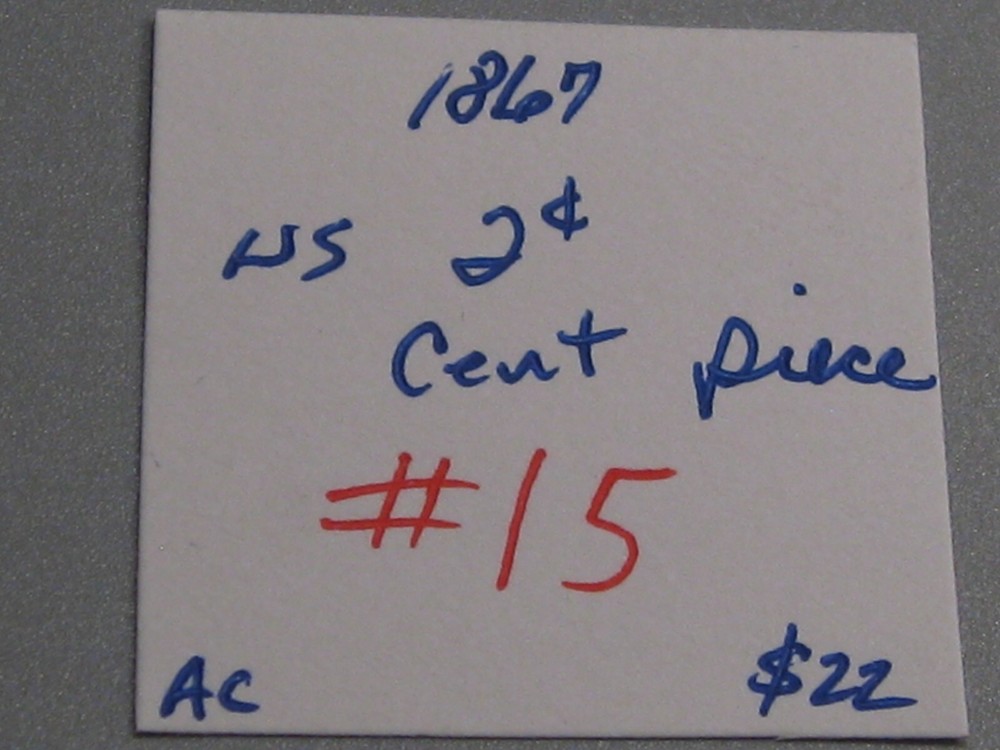 1867
US 2¢
Cent piece
#15
AC $22